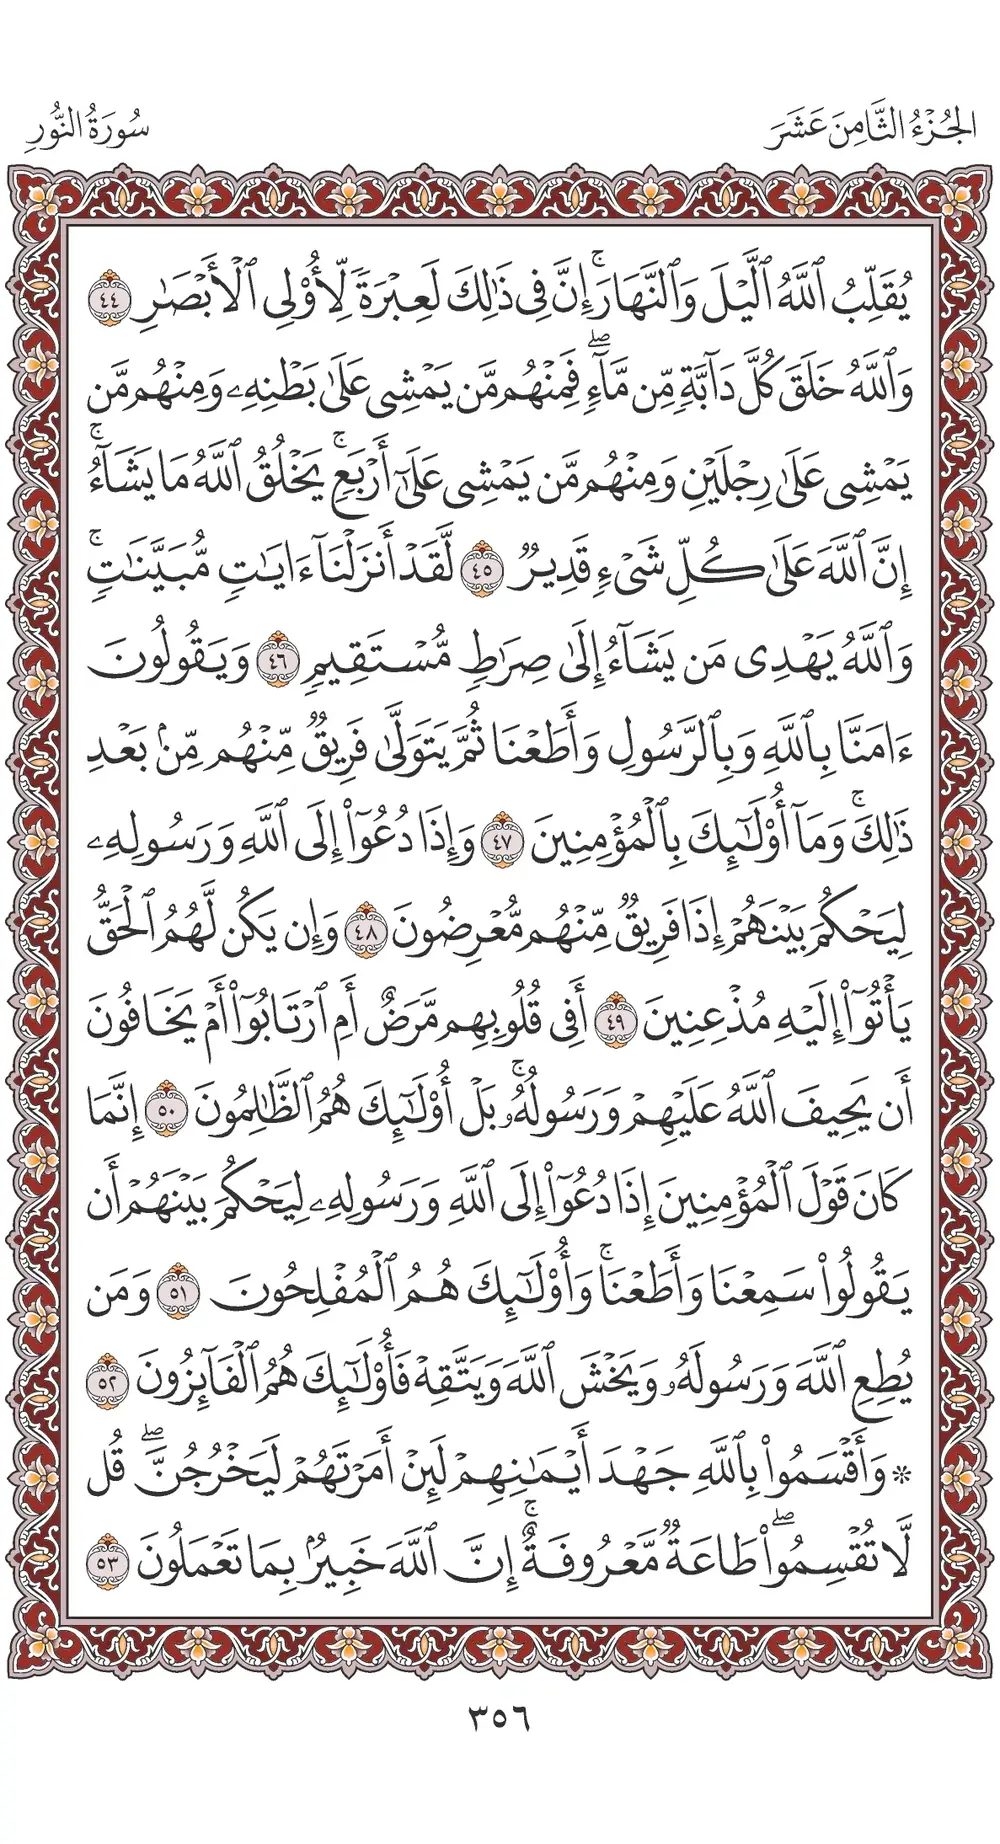 الجُزْءُ الثَّامِنَ عَشَرَ
سُورَةُ النُّورِ
يُقَلِّبُ ٱللَّهُ ٱلَّيْلَ وَٱلنَّهَارَۚ إِنَّ فِى ذَٰلِكَ لَعِبْرَةً لِّأُو۟لِى ٱلْأَبْصَٰرِ ٤٤
وَٱللَّهُ خَلَقَ كُلَّ دَآبَّةٍ مِّن مَّآءٍۖ فَمِنْهُم مَّن يَمْشِى عَلَىٰ بَطْنِهِۦ وَمِنْهُم مَّن
يَمْشِى عَلَىٰ رِجْلَيْنِ وَمِنْهُم مَّن يَمْشِى عَلَىٰٓ أَرْبَعٍۚ يَخْلُقُ ٱللَّهُ مَا يَشَآءُۚ
إِنَّ ٱللَّهَ عَلَىٰ كُلِّ شَىْءٍ قَدِيرٌ ٤٥ لَّقَدْ أَنزَلْنَآ ءَايَٰتٍ مُّبَيِّنَٰتٍۚ
وَٱللَّهُ يَهْدِى مَن يَشَآءُ إِلَىٰ صِرَٰطٍ مُّسْتَقِيمٍ ٤٦ وَيَقُولُونَ
ءَامَنَّا بِٱللَّهِ وَبِٱلرَّسُولِ وَأَطَعْنَا ثُمَّ يَتَوَلَّىٰ فَرِيقٌ مِّنْهُم مِّنۢ بَعْدِ
ذَٰلِكَۚ وَمَآ أُو۟لَٰٓئِكَ بِٱلْمُؤْمِنِينَ ٤٧ وَإِذَا دُعُوٓا۟ إِلَى ٱللَّهِ وَرَسُولِهِۦ
لِيَحْكُمَ بَيْنَهُمْ إِذَا فَرِيقٌ مِّنْهُم مُّعْرِضُونَ ٤٨ وَإِن يَكُن لَّهُمُ ٱلْحَقُّ
يَأْتُوٓا۟ إِلَيْهِ مُذْعِنِينَ ٤٩ أَفِى قُلُوبِهِم مَّرَضٌ أَمِ ٱرْتَابُوٓا۟ أَمْ يَخَافُونَ
أَن يَحِيفَ ٱللَّهُ عَلَيْهِمْ وَرَسُولُهُۥۚ بَلْ أُو۟لَٰٓئِكَ هُمُ ٱلظَّٰلِمُونَ ٥٠ إِنَّمَا
كَانَ قَوْلَ ٱلْمُؤْمِنِينَ إِذَا دُعُوٓا۟ إِلَى ٱللَّهِ وَرَسُولِهِۦ لِيَحْكُمَ بَيْنَهُمْ أَن
يَقُولُوا۟ سَمِعْنَا وَأَطَعْنَاۚ وَأُو۟لَٰٓئِكَ هُمُ ٱلْمُفْلِحُونَ ٥١ وَمَن
يُطِعِ ٱللَّهَ وَرَسُولَهُۥ وَيَخْشَ ٱللَّهَ وَيَتَّقْهِ فَأُو۟لَٰٓئِكَ هُمُ ٱلْفَآئِزُونَ ٥٢
* وَأَقْسَمُوا۟ بِٱللَّهِ جَهْدَ أَيْمَٰنِهِمْ لَئِنْ أَمَرْتَهُمْ لَيَخْرُجُنَّۖ قُل
لَّا تُقْسِمُوا۟ۖ طَاعَةٌ مَّعْرُوفَةٌۚ إِنَّ ٱللَّهَ خَبِيرٌۢ بِمَا تَعْمَلُونَ ٥٣
٣٥٦